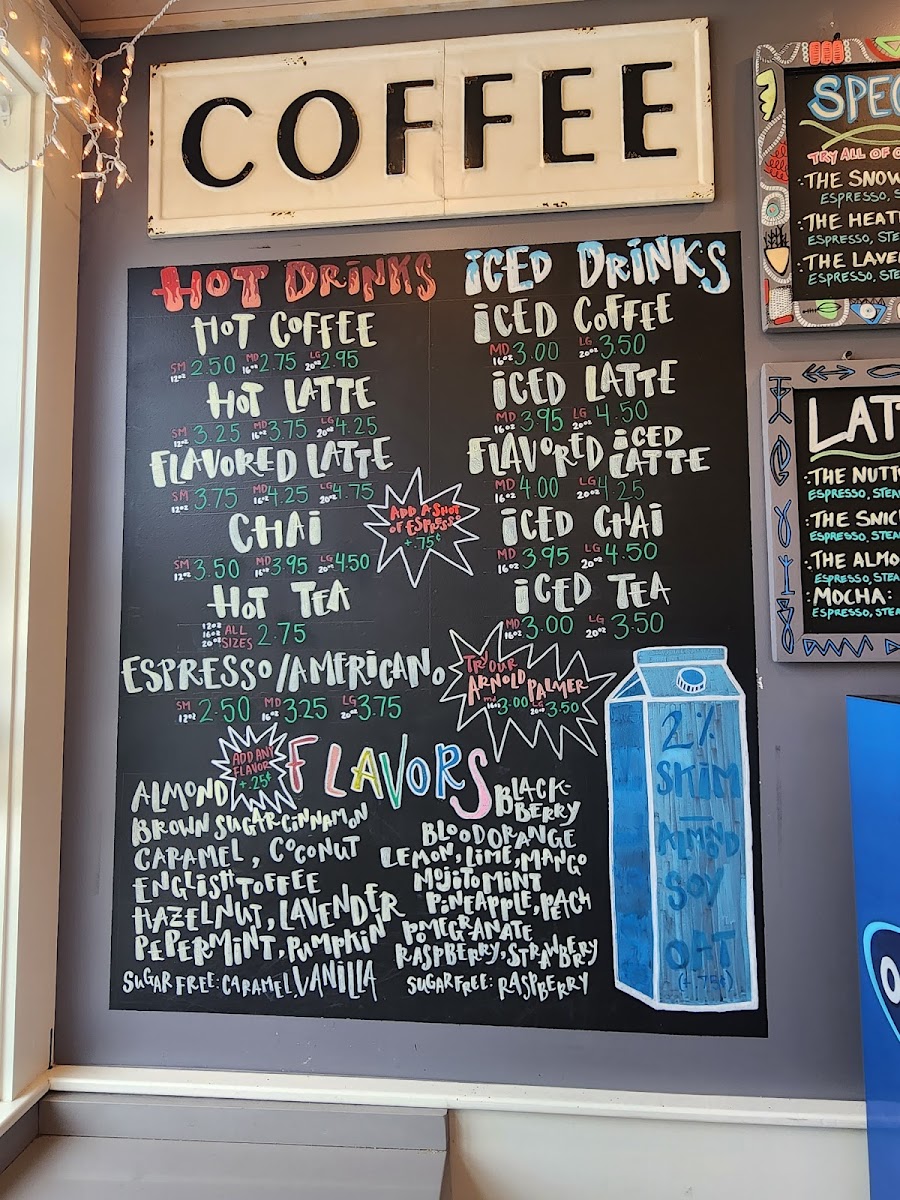 COFFEE
HOT DRINKS
HOT COFFEE
SM 12oz 2.50 MD 16oz 2.75 LG 20oz 2.95
HOT LATTE
SM 12oz 3.25 MD 16oz 3.75 LG 20oz 4.25
FLAVORED LATTE
SM 12oz 3.75 MD 16oz 4.25 LG 20oz 4.75
CHAI
SM 12oz 3.50 MD 16oz 3.95 LG 20oz 4.50
HOT TEA
12oz 16oz 20oz ALL SIZES 2.75
ESPRESSO//AMERICANO
SM 12oz 2.50 MD 16oz 3.25 LG 20oz 3.75
ADD A SHOT
OF ESPRESSO
+.75¢
ICED DRINKS
ICED COFFEE
MD 16oz 3.00 LG 20oz 3.50
ICED LATTE
MD 16oz 3.95 LG 20oz 4.50
FLAVORED ICED LATTE
MD 16oz 4.00 LG 20oz 4.25
ICED CHAI
MD 16oz 3.95 LG 20oz 4.50
ICED TEA
MD 16oz 3.00 LG 20oz 3.50
TRY OUR
ARNOLD PALMER
MD 16oz 3.00 LG 20oz 3.50
FLAVORS
ADD ANY
FLAVOR
+.25¢
ALMOND
BROWN SUGAR CINNAMON
CARAMEL, COCONUT
ENGLISH TOFFEE
HAZELNUT, LAVENDER
PEPERMINT, PUMPKIN
SUGAR FREE: CARAMEL, VANILLA
BLACK-
BERRY
BLOODORANGE
LEMON, LIME, MANGO
MOJITO MINT
PINEAPPLE, PEACH
POMEGRANATE
RASPBERRY, STRAWBRRY
SUGAR FREE: RASPBERRY
2%
SKIM
ALMOND
SOY
OAT
(+.75¢)
TRY ALL OF
:THE SNOW
ESPRESSO, S
:THE HEAT
ESPRESSO, STE
:THE LAVE
ESPRESSO, STE
LAT
:THE NUTT
ESPRESSO, STEA
:THE SNIC
ESPRESSO, STEA
:THE ALMO
ESPRESSO, STEA
:MOCHA:
ESPRESSO, STEA